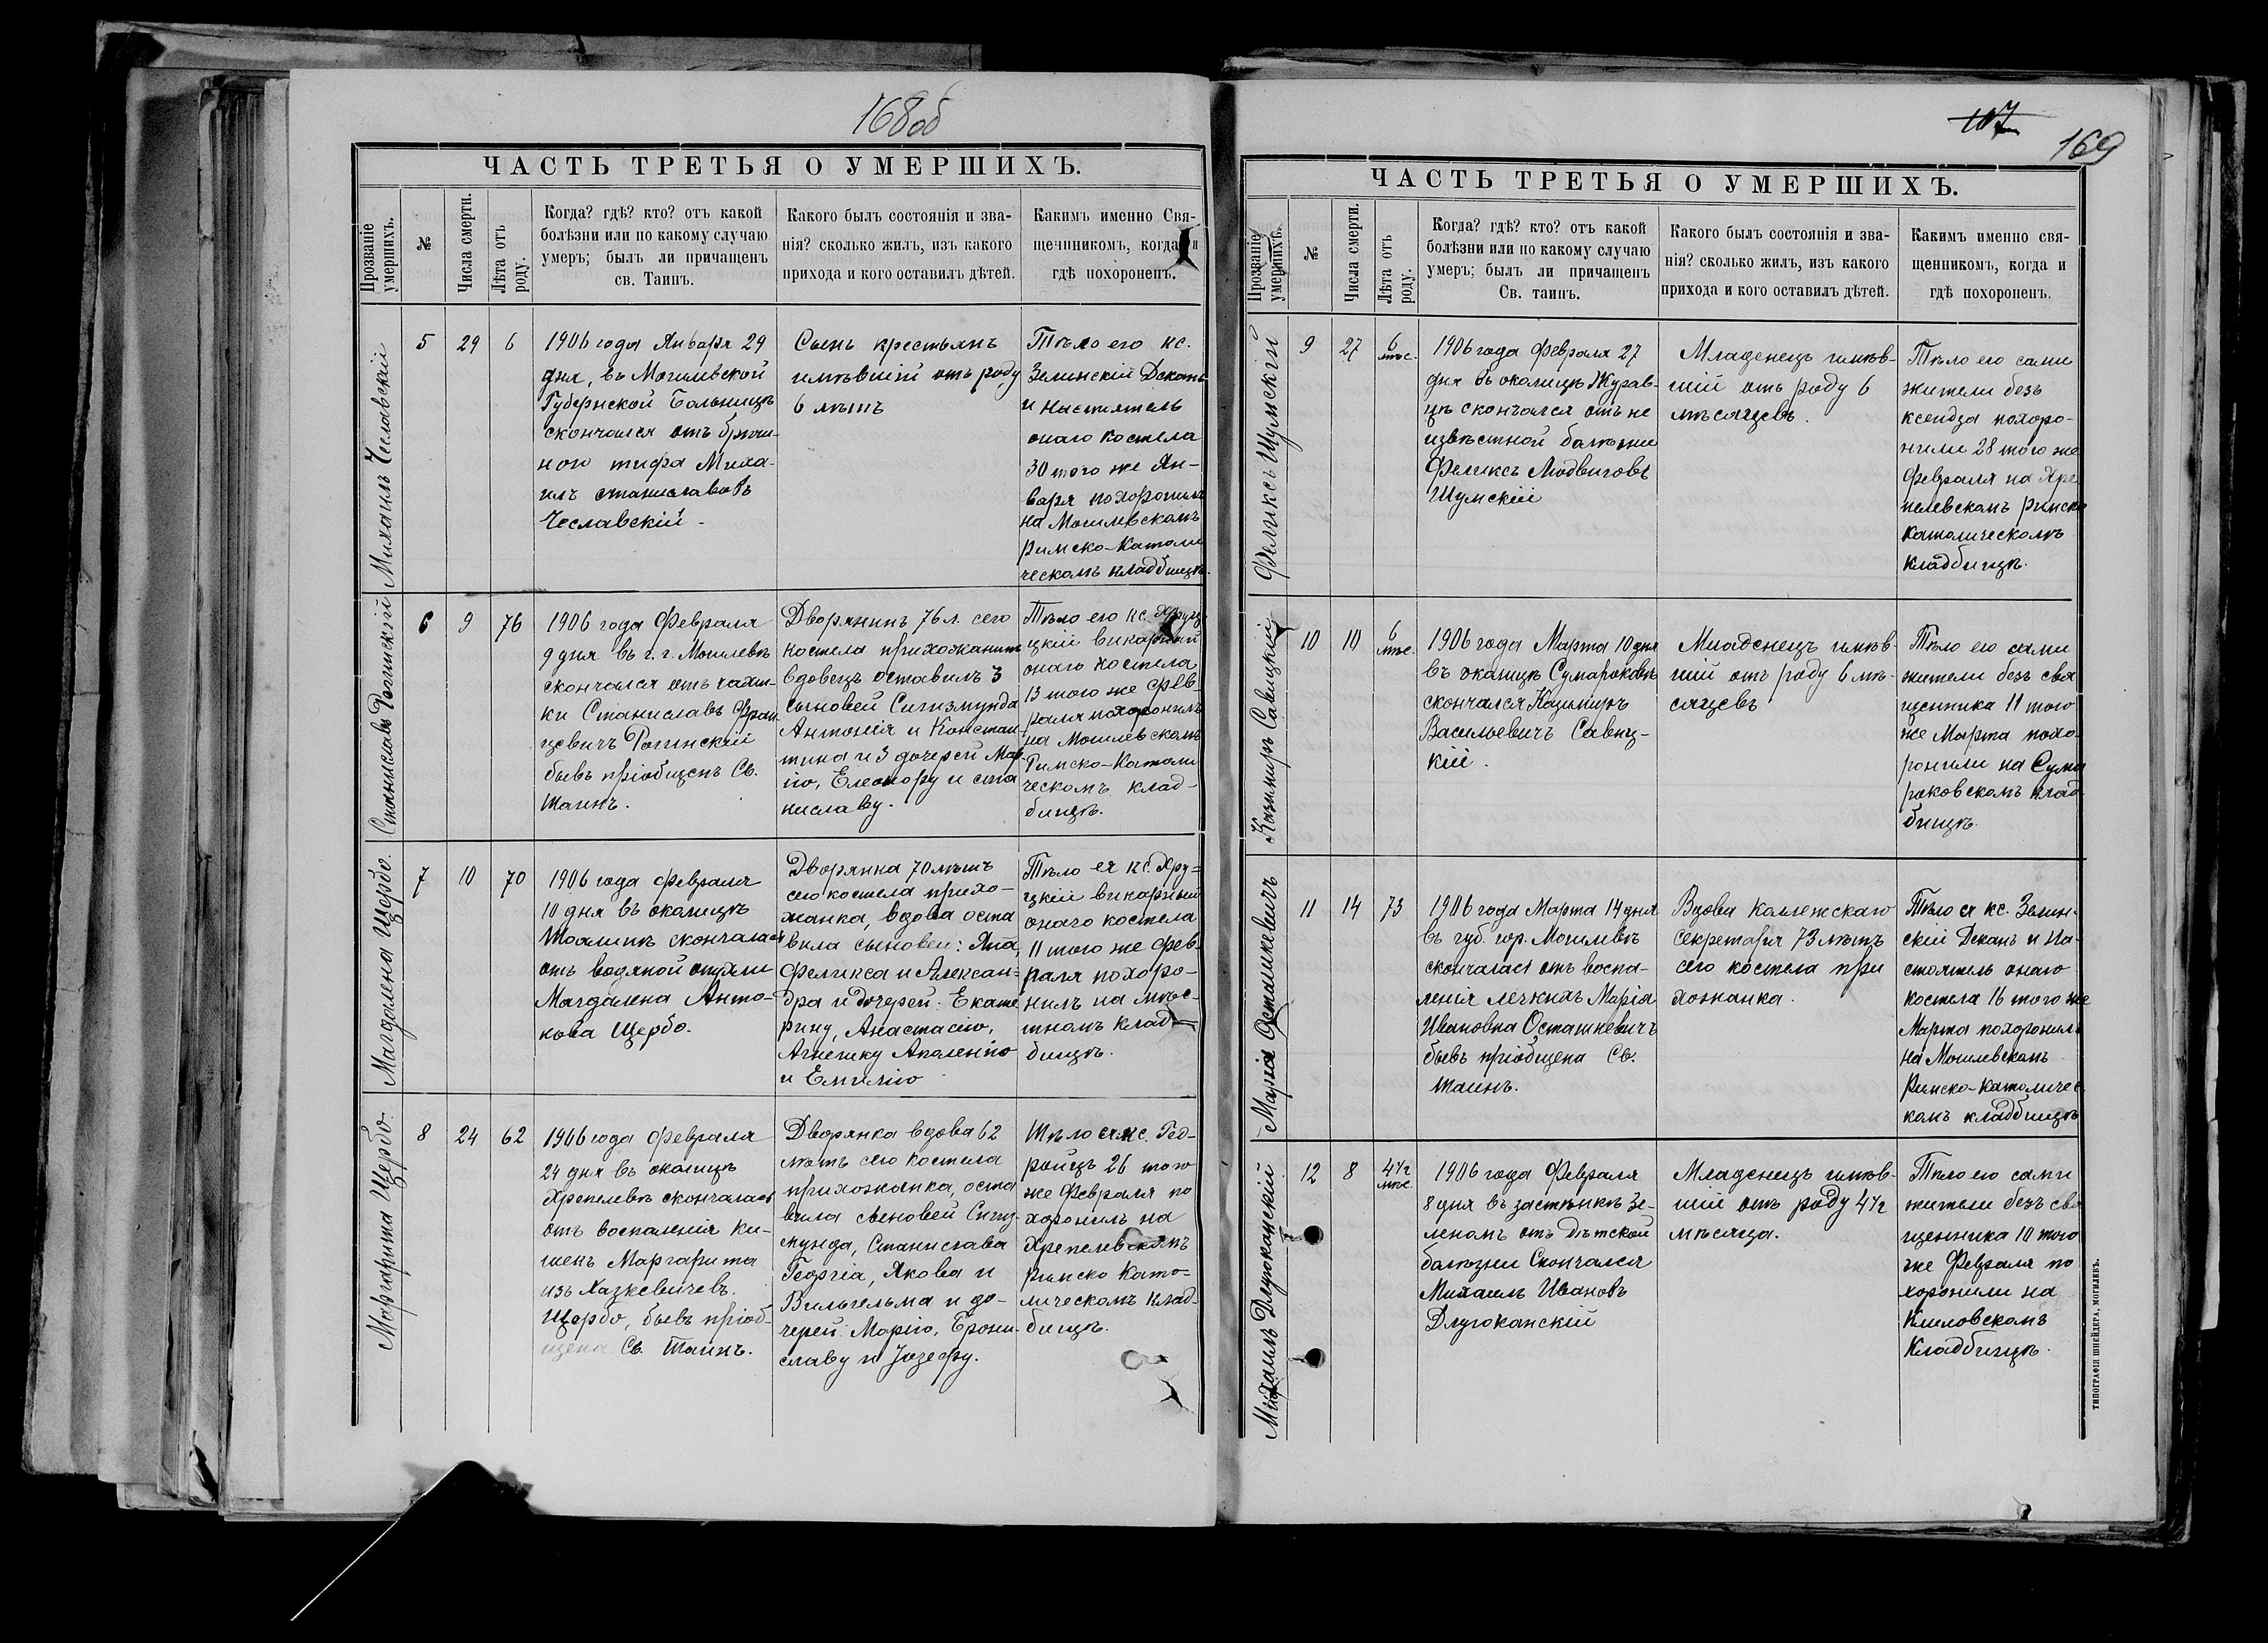 168об
ЧАСТЬ ТРЕТЬЯ О УМЕРШИХЪ.
Прозваніе умершихъ.
№
Числа смерти.
Лѣта отъ роду.
Когда? гдѣ? кто? отъ какой
болѣзни или по какому случаю
умеръ; былъ ли причащенъ
св. Таинъ.
Какого былъ состоянія и зва-
нія? сколько жилъ, изъ какого
прихода и кого оставилъ дѣтей.
Какимъ именно Свя-
щенникомъ, когда и
гдѣ похороненъ.
Михаилъ Чеславскій
5
29
6
1906 года Января 29
дня, въ Могилевской
Губернской Больницѣ
скончался отъ брюш-
ного тифа Миха-
илъ Станиславовъ
Чеславскій -
Сынъ крестьянъ
имѣвшій отъ роду
6 лѣтъ
Тѣло его кс.
Зелинскій Деканъ
и Настоятель
онаго костела
30 того же Ян-
варя похоронилъ
на Могилевскомъ
Римско-Католи
ческомъ кладбищѣ.
Станиславъ Рогинскій
6
9
76
1906 года Февраля
9 дня въ г. г. Могилевѣ
скончался отъ чахот-
ки Станиславъ Фран
цевичъ Рогинскій
бывъ пріобщенъ Св.
Таинъ.
Дворянинъ 76 л. сего
костела прихожанинъ
вдовецъ оставилъ 3
сыновей Сигизмунда
Антонія и Констан-
тина и 3 дочерей Мар-
ію, Елеонору и Ста
ниславу.
Тѣло его кс. Хруц
цкій викарный
онаго костела
13 того же Фев-
раля похоронилъ
на Могилевскомъ
Римско-Католи
ческомъ клад-
бищѣ.
Магдалена Щербо.
7
10
70
1906 года Февраля
10 дня въ околицѣ
скончалась
отъ водяной опухли
Магдалена Анто-
нова Щербо.
Дворянка 70 лѣтъ
сего костела прихо-
жанка, вдова оста
вила сыновей: Яна,
Феликса и Алексан-
дра и дочерей: Екате
рину, Анастасію,
Агнешку Аполенію
и Емилію
Тѣло ея кс. Хру=
цкій викарный
онаго костела
11 того же Фев-
раля похоро-
нилъ на мѣс-
тномъ клад-
бищѣ.
Маргарита Щербо.
8
24
62
1906 года Февраля
24 дня въ околицѣ
Хрепелевѣ скончалась
отъ воспаленія ки-
шекъ Маргарита
изъ
Щербо, бывъ пріоб-
щена Св. Таинъ.
Дворянка вдова 62
лѣтъ сего костела
прихожанка, оста
вила сыновей Сигиз-
мунда, Станислава
Георгія, Якова и
Вильгельма и до-
черей: Марію, Брони-
славу и Јозефу.
Тѣло ея кс. Гед-
ройцъ 26 того
же Февраля по
хоронилъ на
Хрепелевскомъ
Римско Като-
лическомъ клад-
бищѣ.
107
169
ЧАСТЬ ТРЕТЬЯ О УМЕРШИХЪ.
Прозваніе умершихъ.
№
Числа смерти.
Лѣта отъ роду.
Когда? гдѣ? кто? отъ какой
болѣзни или по какому случаю
умеръ; былъ ли причащенъ
Св. таинъ.
Какого былъ состоянія и зва-
нія? сколько жилъ, изъ какого
прихода и кого оставилъ дѣтей.
Какимъ именно свя-
щенникомъ, когда и
гдѣ похороненъ.
Феликсъ Шумскій
9
27
6 мѣс.
1906 года Февраля 27
дня въ околицѣ Журав-
цѣ скончался отъ не
извѣстной болѣзни
Феликсъ Людвиговъ
Шумскій
Младенецъ имѣв-
шій отъ роду 6
мѣсяцевъ.
Тѣло его сами
жители безъ
ксендза похоро-
нили 28 того же
Февраля на Хре
пелевскомъ римско
католическомъ
кладбищѣ.
Казимиръ Савицкій
10
10
6 мѣс.
1906 года Марта 10 дня
въ околицѣ Сумароковѣ
скончался Казимиръ
Васильевичъ Савиц-
кій.
Младенецъ имѣв-
шій отъ роду 6 мѣ-
сяцевъ
Тѣло его сами
жители безъ свя
щенника 11 того
же Марта похо-
ронили на Сума
роковскомъ клад-
бищѣ.
Марія Осташкевичъ
11
14
73
1906 года Марта 14 дня
въ губ. гор. Могилевѣ
скончалась отъ воспа-
ленія легкихъ Марія
Ивановна Осташкевичъ
бывъ пріобщена Св.
Таинъ.
Вдова Коллежскаго
секретаря 73 лѣтъ
сего костела при
хожанка.
Тѣло ея кс. Зелин-
скій Деканъ и На-
стоятель онаго
костела 16 того же
Марта похоронилъ
на Могилевскомъ
Римско-католичес-
комъ кладбищѣ
Михаилъ Длугоканскій
12
8
4½ мѣс.
1906 года Февраля
8 дня въ застѣнкѣ Зе-
леномъ отъ Дѣтской
болѣзни Скончался
Михаилъ Ивановъ
Длугоканскій
Младенецъ имѣв-
шій отъ роду 4½
мѣсяца.
Тѣло его сами
жители безъ свя
щенника 10 того
же Февраля по
хоронили на
Кладбищѣ.
ТИПОГРАФІЯ ШНЕЙДЕРА, МОГИЛЕВЪ.